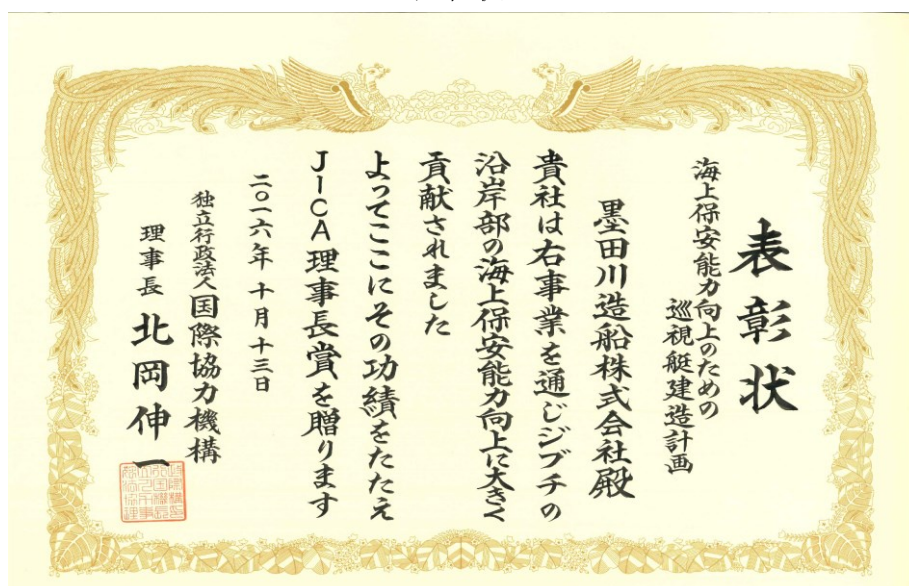 表彰状
海上保安能力向上のための
巡視艇建造計画
墨田川造船株式会社殿
貴社は右事業を通じジブチの
沿岸部の海上保安能力向上に大きく
貢献されました
よってここにその功績をたたえ
JICA理事長賞を贈ります
二〇一六年十月十三日
独立行政法人国際協力機構
理事長 北岡伸一